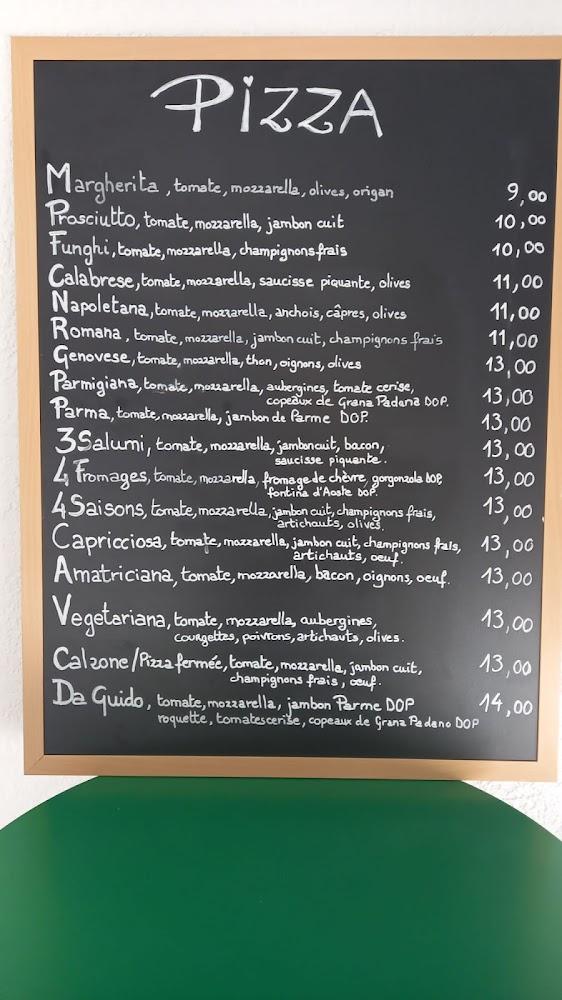 PiZZA
Margherita, tomate, mozzarella, olives, origan 9,00
Prosciutto, tomate, mozzarella, jambon cuit 10,00
Funghi, tomate, mozzarella, champignons frais 10,00
Calabrese, tomate, mozzarella, saucisse piquante, olives 11,00
Napoletana, tomate, mozzarella, anchois, câpres, olives 11,00
Romana, tomate, mozzarella, jambon cuit, champignons frais 11,00
Genovese, tomate, mozzarella, thon, oignons, olives 13,00
Parmigiana, tomate, mozzarella, aubergines, tomate cerise, 13,00
copeaux de Grana Padana DOP.
Parma, tomate, mozzarella, jambon de Parme DOP. 13,00
3 Salumi, tomate, mozzarella, jambon cuit, bacon, 13,00
saucisse piquante.
4 Fromages, tomate, mozzarella, fromage de chèvre, gorgonzola DOP, 13,00
fontina d'Aoste DOP.
4 Saisons, tomate, mozzarella, jambon cuit, champignons frais, 13,00
artichauts, olives.
Capricciosa, tomate, mozzarella, jambon cuit, champignons frais, 13,00
artichauts, oeuf.
Amatriciana, tomate, mozzarella, bacon, oignons, oeuf. 13,00
Vegetariana, tomate, mozzarella, aubergines, 13,00
courgettes, poivrons, artichauts, olives.
Calzone/Pizza fermée, tomate, mozzarella, jambon cuit, 13,00
champignons frais, oeuf.
Da Guido, tomate, mozzarella, jambon Parme DOP 14,00
roquette, tomates cerise, copeaux de Grana Padano DOP